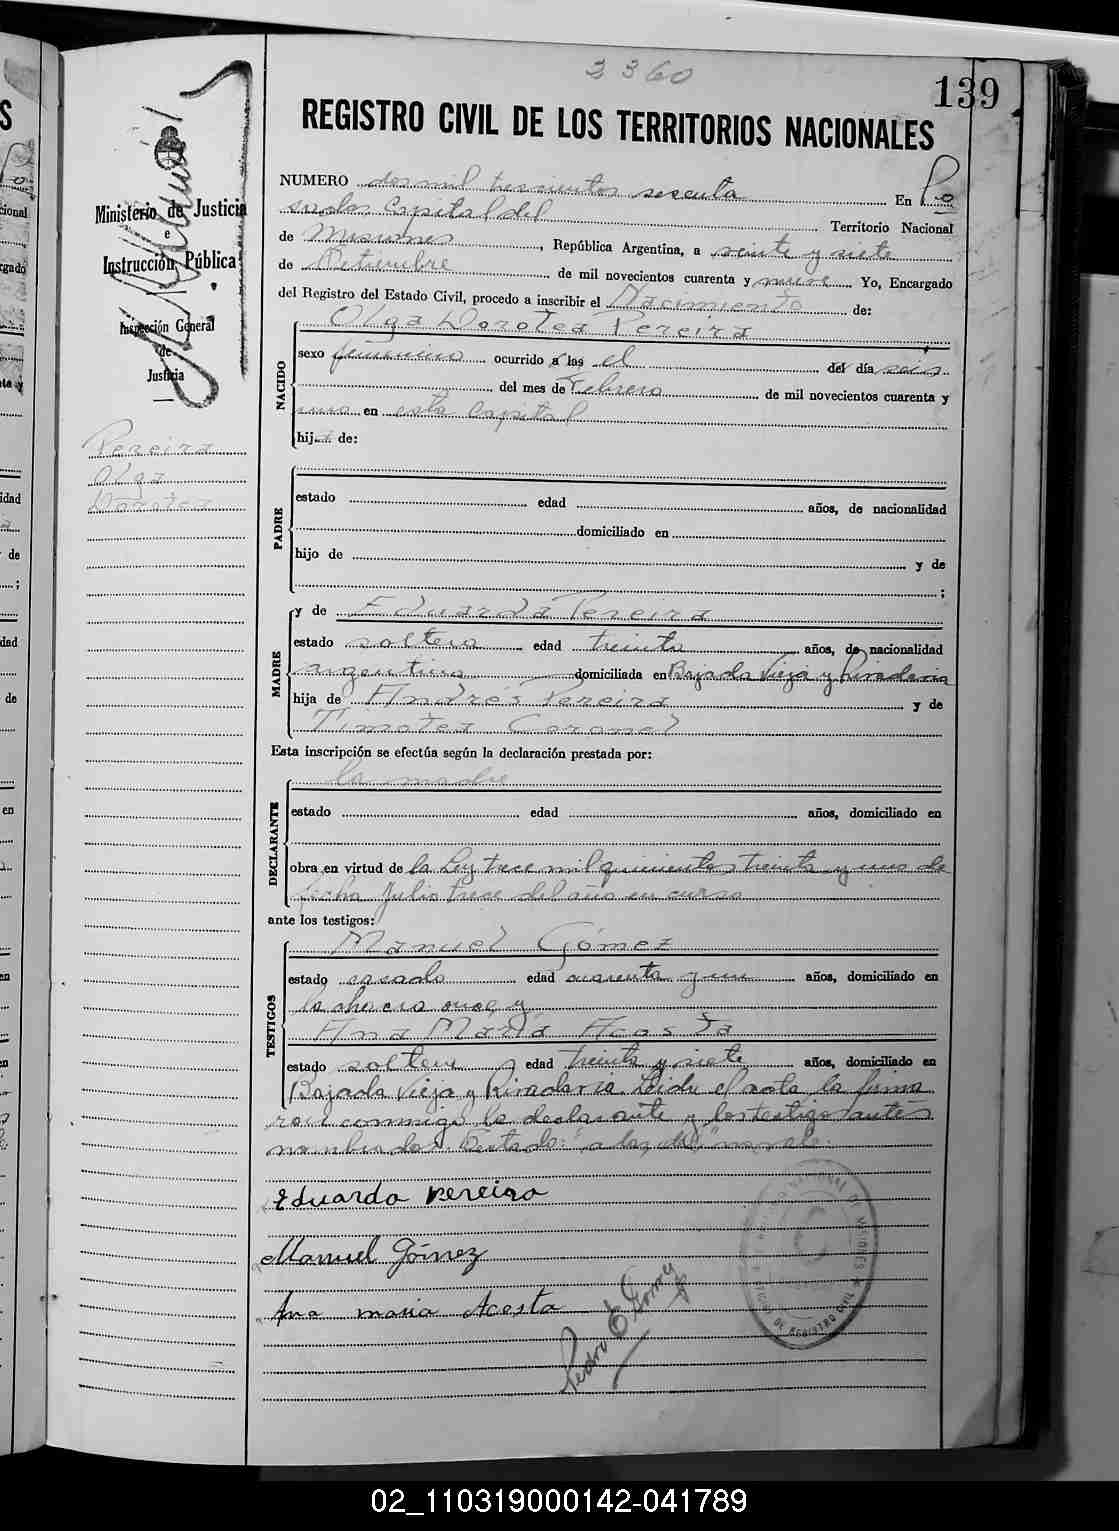 3360
139
REGISTRO CIVIL DE LOS TERRITORIOS NACIONALES
Ministerio de Justicia
e
Instrucción Pública
Inspección General
de
Justicia
Pereira
Olga
Dorotea
NUMERO dos mil trescientos sesenta En Po
sadas Capital del Territorio Nacional
de Misiones, República Argentina, a veinte y siete
de Setiembre de mil novecientos cuarenta y nueve Yo, Encargado
del Registro del Estado Civil, procedo a inscribir el Nacimiento de:
NACIDO
Olga Dorotea Pereira
sexo femenino ocurrido a las el del día seis
del mes de Febrero de mil novecientos cuarenta y
uno en esta Capital
hija de:
PADRE
estado edad años, de nacionalidad
domiciliado en
hijo de y de
;
MADRE
y de Eduarda Pereira
estado soltera edad treinta años, de nacionalidad
argentina domiciliada en Bajada Vieja y Rivadavia
hija de Andrés Pereira y de
Timotea Coronel
Esta inscripción se efectúa según la declaración prestada por:
DECLARANTE
la madre
estado edad años, domiciliado en
obra en virtud de la Ley trece mil quinientos treinta y uno de
fecha Julio trece del año en curso
ante los testigos:
TESTIGOS
Manuel Gómez
estado casado edad cuarenta y un años, domiciliado en
la chacra once y
Ana María Acosta
estado soltera edad treinta y siete años, domiciliado en
Bajada Vieja y Rivadavia. Leida el acta la firma
ron conmigo la declarante y los testigos antes
nombrados. Testado: "a las, del" no vale.
Eduarda Pereira
Manuel Gómez
Ana maria Acosta
Pedro E Gomez
REGISTRO CIVIL
02_110319000142-041789